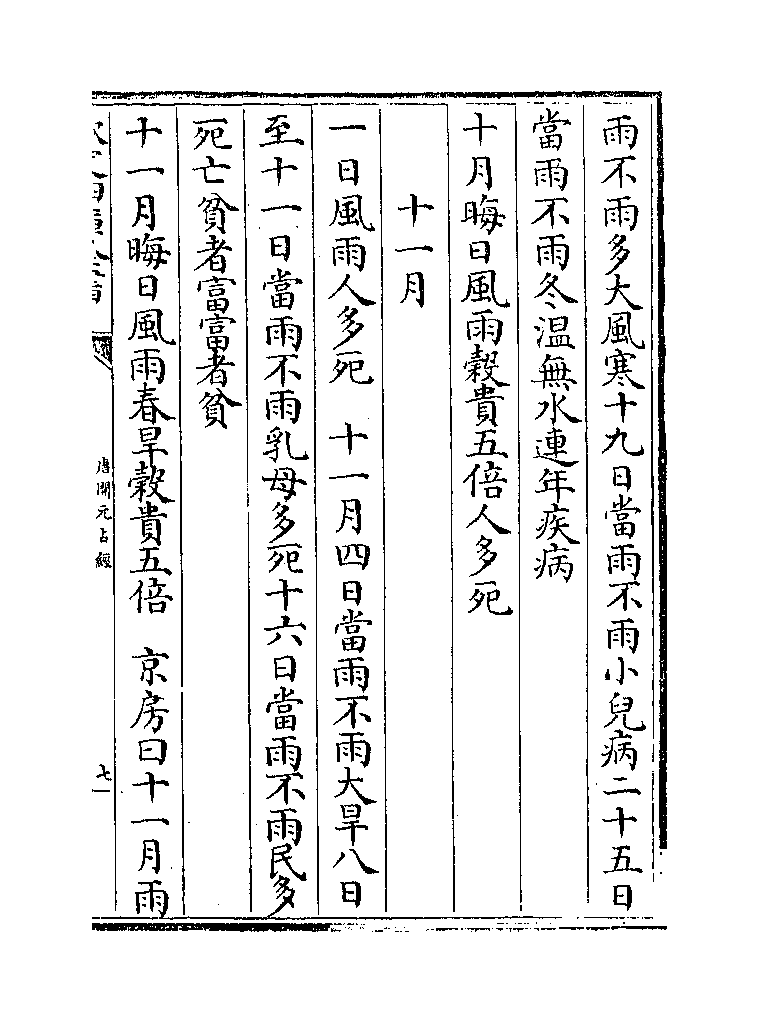 雨不雨多大風寒十九日當雨不雨小兒病二十五日
當雨不雨冬温無水連年疾病
十月晦日風雨穀貴五倍人多死
十一月
一日風雨人多死　十一月四日當雨不雨大旱八日
至十一日當雨不雨乳母多死十六日當雨不雨民多
死亡貧者富富者貧
十一月晦日風雨春旱穀貴五倍　京房曰十一月雨
唐開元占經
七